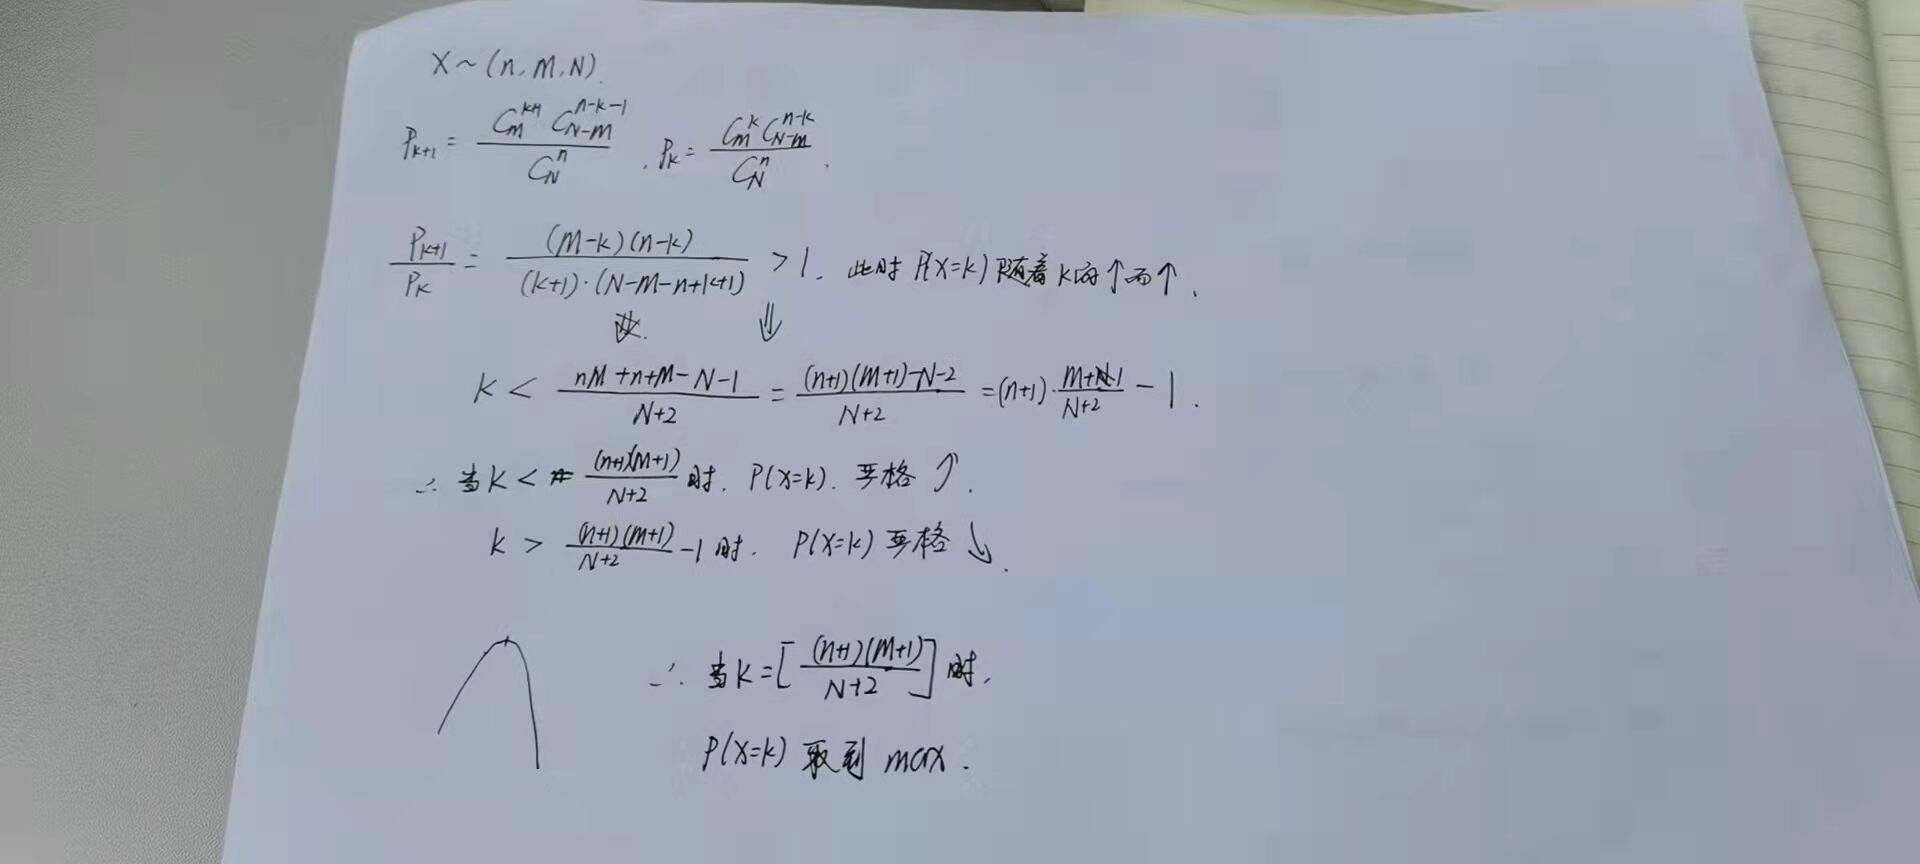 X~(n,M,N).
P_{k+1} = \frac{C_M^{k+1} C_{N-M}^{n-k-1}}{C_N^n} , P_k = \frac{C_M^k C_{N-M}^{n-k}}{C_N^n} .
\frac{P_{k+1}}{P_k} = \frac{(M-k)(n-k)}{(k+1)·(N-M-n+k+1)} > 1 . 此时 P(X=k) 随着 k的↑而↑ .
⇓
k < \frac{nM+n+M-N-1}{N+2} = \frac{(n+1)(M+1)-N-2}{N+2} = (n+1)·\frac{M+1}{N+2} - 1 .
∴ 当 k < \frac{(n+1)(M+1)}{N+2} 时. P(X=k). 严格 ↑.
k > \frac{(n+1)(M+1)}{N+2} - 1 时. P(X=k) 严格 ↓.
∴ 当 k = [\frac{(n+1)(M+1)}{N+2}] 时,
P(X=k) 取到 max .